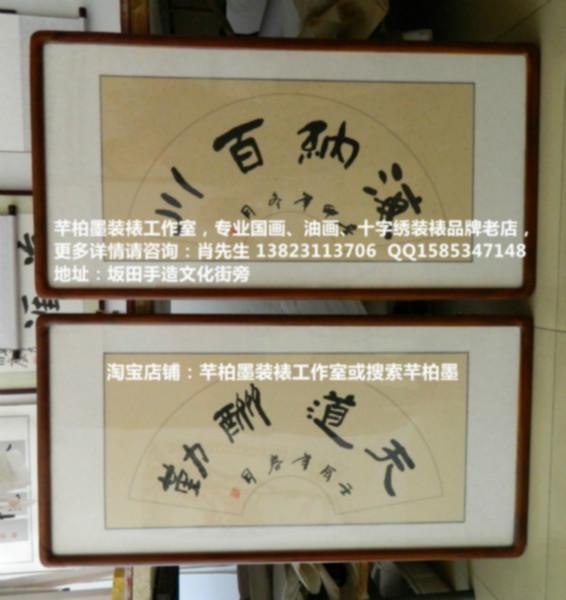 海纳百川
芊柏墨装裱工作室，专业国画、油画、十字绣装裱品牌老店，
更多详情请咨询：肖先生 13823113706 QQ1585347148
地址：坂田手造文化街旁
淘宝店铺：芊柏墨装裱工作室或搜索芊柏墨
天道酬勤